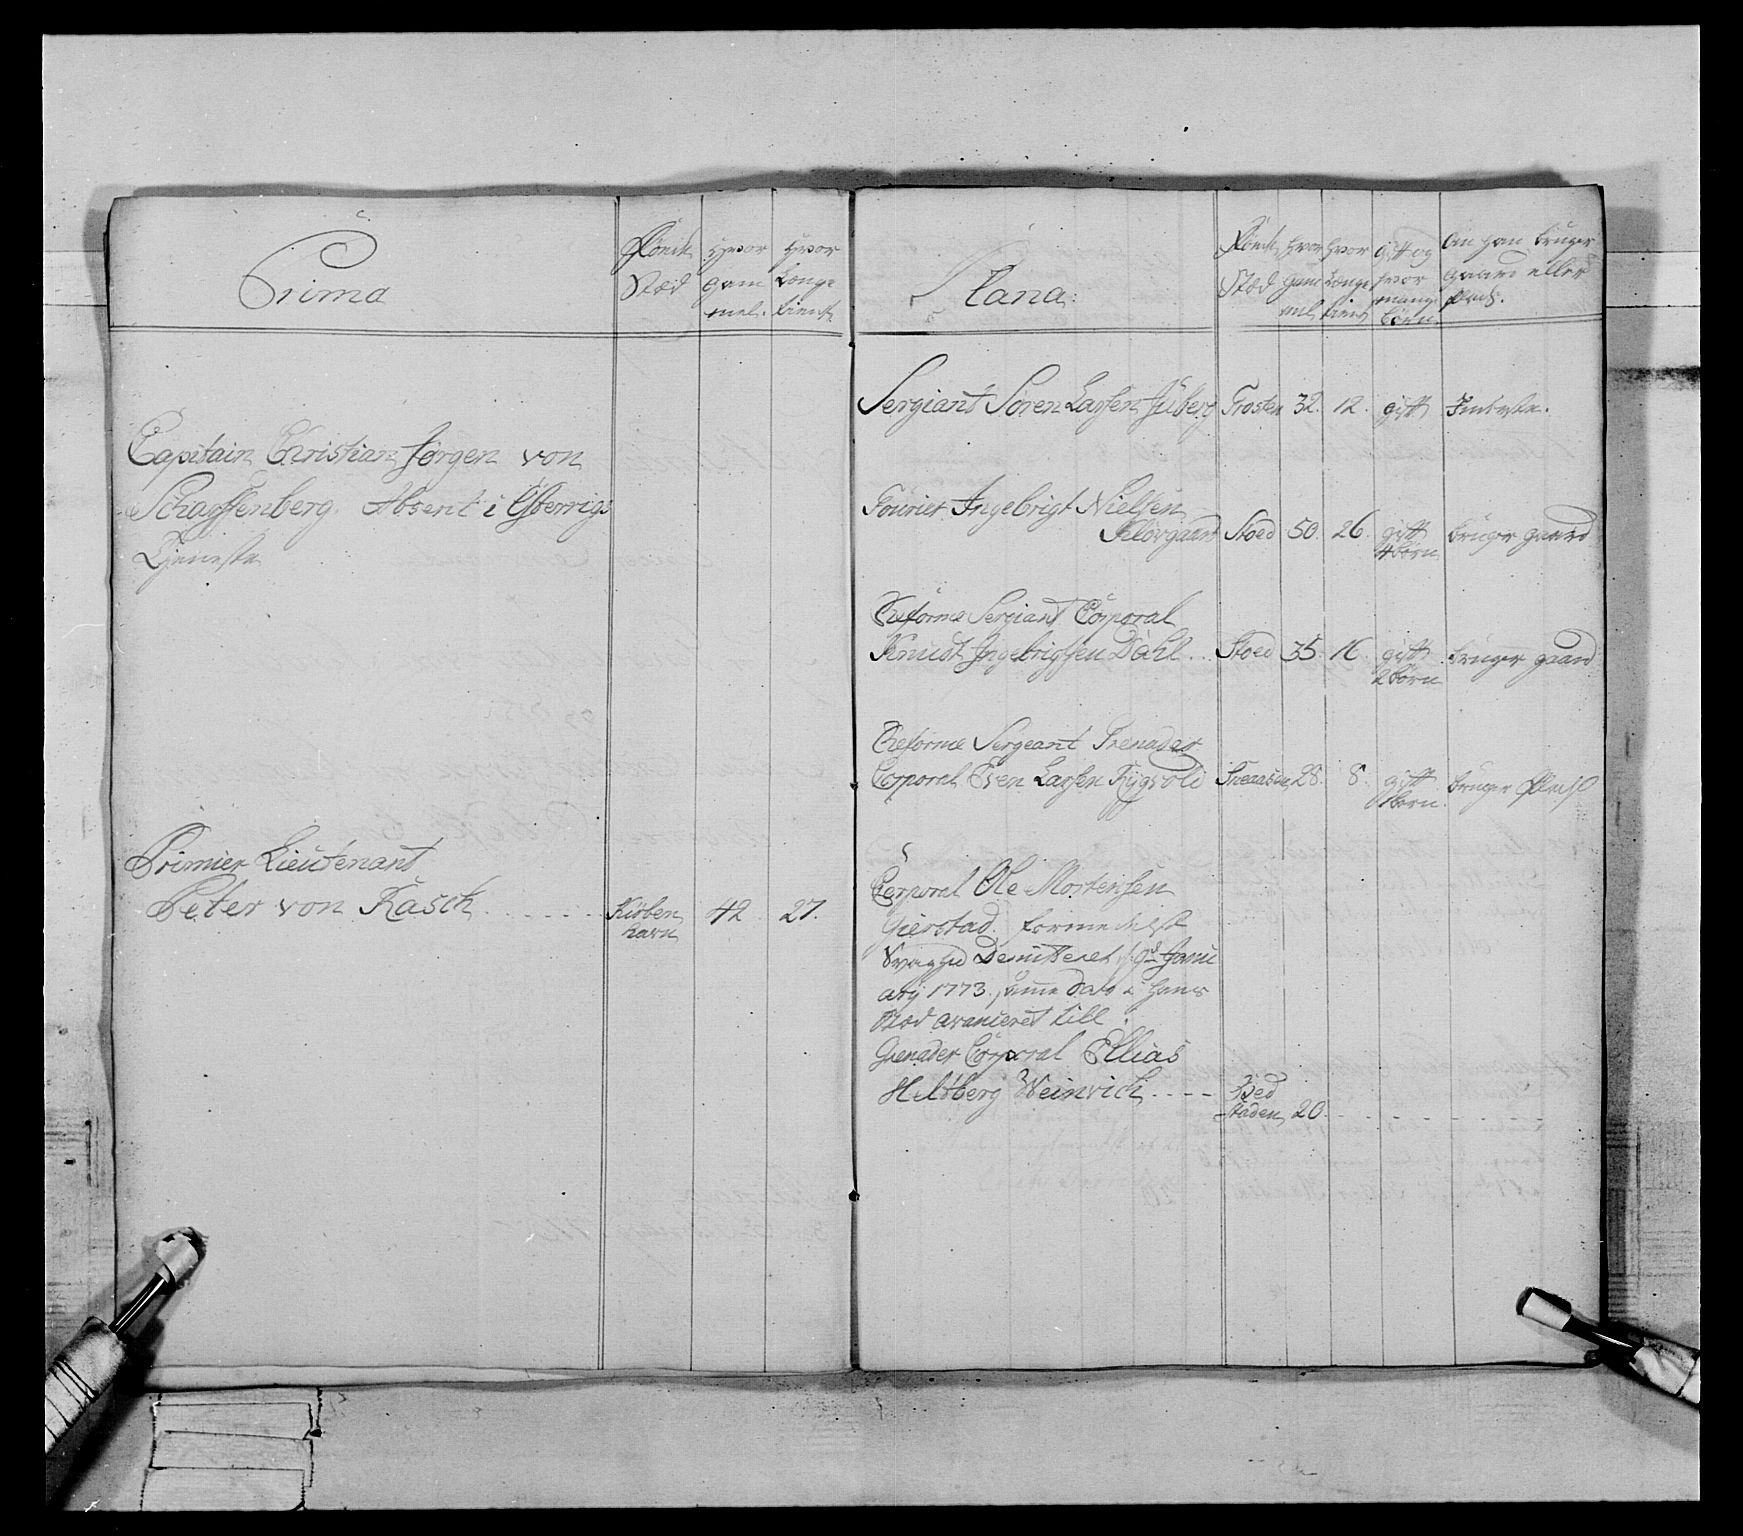 Prima
Fôeste Stæd
Hvor gam mel.
Hvor Længe tient
Capitain Christian Jørgen von
Schaffenberg. Absent i Østerrigs
Tjeneste
Primier Lieutenant
Peter von Kasck
Kiøben
havn
42
27.
Plana:
Stæd
Hvor gam mel
Hvor Længe tient
Gift og hvor mange børn
Om han bruger gaard eller Plads.
Sergiant Søren Larsen Juberg Frosten 32. 12. gift
Fourier Ingebrigt Nielsen
Kløvgaard Stoed 50. 26. gift bruger gaard
4 børn
Reforme Sergiant Corporal
Knudt Ingebrigtsen Dahl. Stoed 35. 16. gift bruger gaard
2 børn
Reforme Sergeant Grenader
Corporal Even Larsen Rygvold Sneaasen 28. 8. gift bruger Plads
børn
Corporal Ole Mortensen
Gierstad formedelst
Svaghed Demitteret d: 9d Janu
arij 1773. samme Dato i hans
Stæd avanceret till
Grenader Corporal Ellias
Heltberg Weinrich Bed
staden 20.